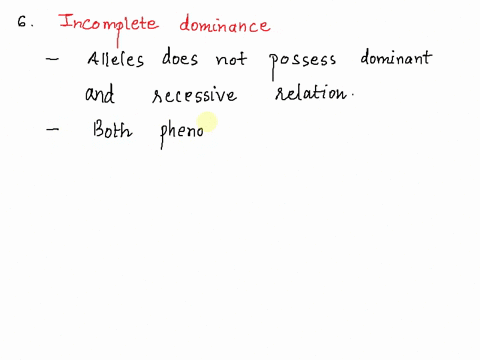 6. Incomplete dominance
- Alleles does not possess dominant
and recessive relation.
- Both pheno